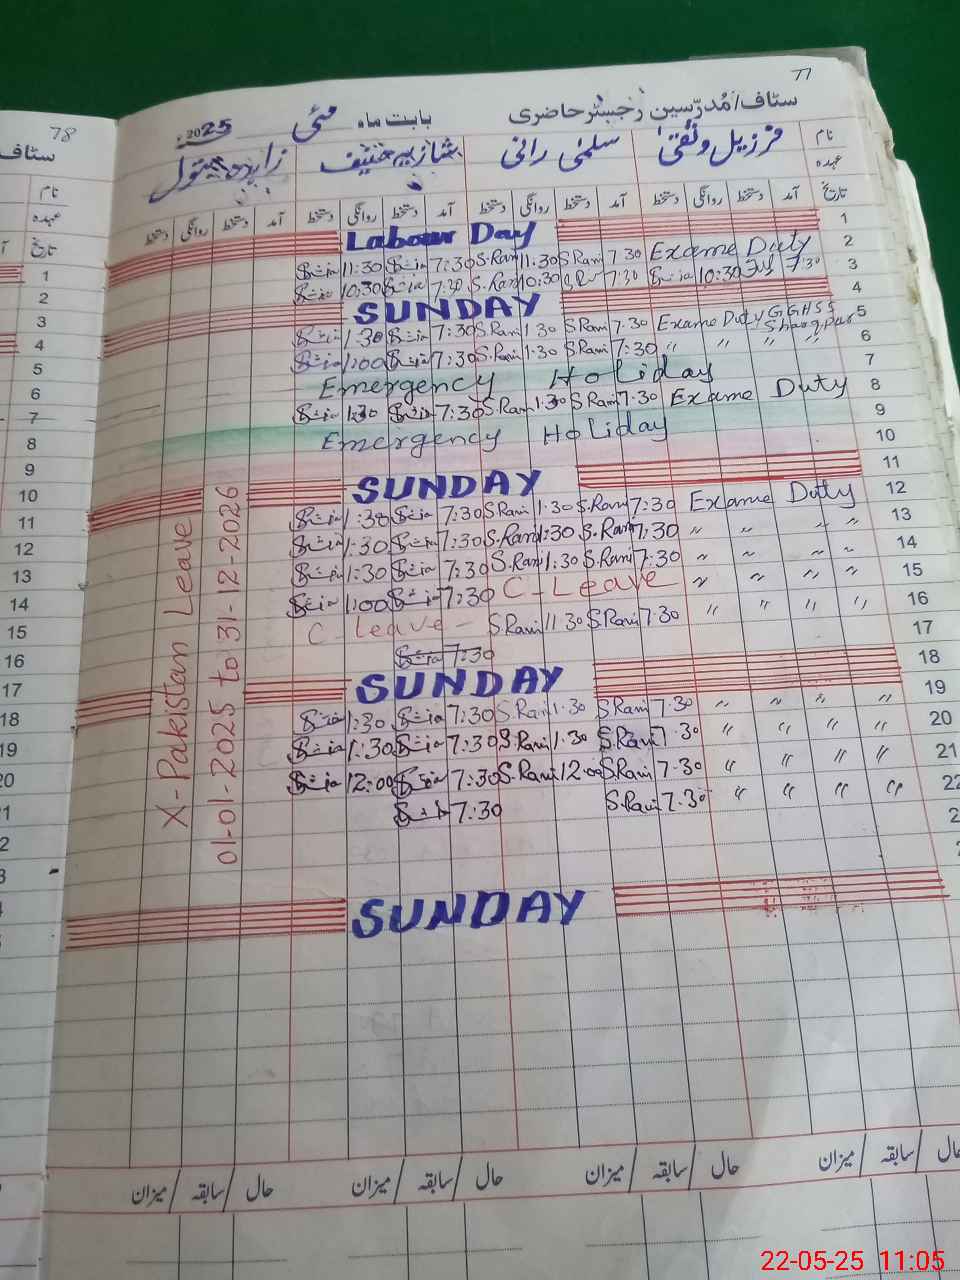 77
سٹاف/مُدرّسین رجسٹر حاضری بابت ماہ مئی 2025
نام فرزیل وثقیٰ سلمٰی رانی شازیہ حنیف زاہدہ بتول
عہدہ
تاریخ آمد دستخط روانگی دستخط آمد دستخط روانگی دستخط آمد دستخط روانگی دستخط آمد دستخط روانگی دستخط
Labour Day 1
11:30 7:30 S.Rani 11:30 S.Rani 7:30 Exame Duty 2
10:30 7:30 S.Rani 10:30 7:30 10:30 7:30 3
SUNDAY 4
1:30 7:30 S.Rani 1:30 S.Rani 7:30 Exame Duty GGHSS 5
1:00 7:30 S.Rani 1:30 S.Rani 7:30 " " " " 6
Emergency Holiday 7
1:30 7:30 S.Rani 1:30 S.Rani 7:30 Exame Duty 8
Emergency Holiday 9
10
SUNDAY 11
1:30 7:30 S.Rani 1:30 S.Rani 7:30 Exame Duty 12
1:30 7:30 S.Rani 1:30 S.Rani 7:30 " " " " 13
1:30 7:30 S.Rani 1:30 S.Rani 7:30 " " " " 14
1:00 7:30 C-Leave " " " " 15
C-Leave - S.Rani 11:30 S.Rani 7:30 " " " " 16
7:30 17
SUNDAY 18
1:30 7:30 S.Rani 1:30 S.Rani 7:30 " " " " 19
1:30 7:30 S.Rani 1:30 S.Rani 7:30 " " " " 20
12:00 7:30 S.Rani 12:00 S.Rani 7:30 " " " " 21
7:30 S.Rani 7:30 " " " " 22
SUNDAY
X-Pakistan Leave
01-01-2025 to 31-12-2026
حال / سابقہ / میزان حال / سابقہ / میزان حال / سابقہ / میزان حال / سابقہ / میزان
78
سٹاف
نام
عہدہ
تاریخ
1
2
3
4
5
6
7
8
9
10
11
12
13
14
15
16
17
18
19
20
22-05-25 11:05